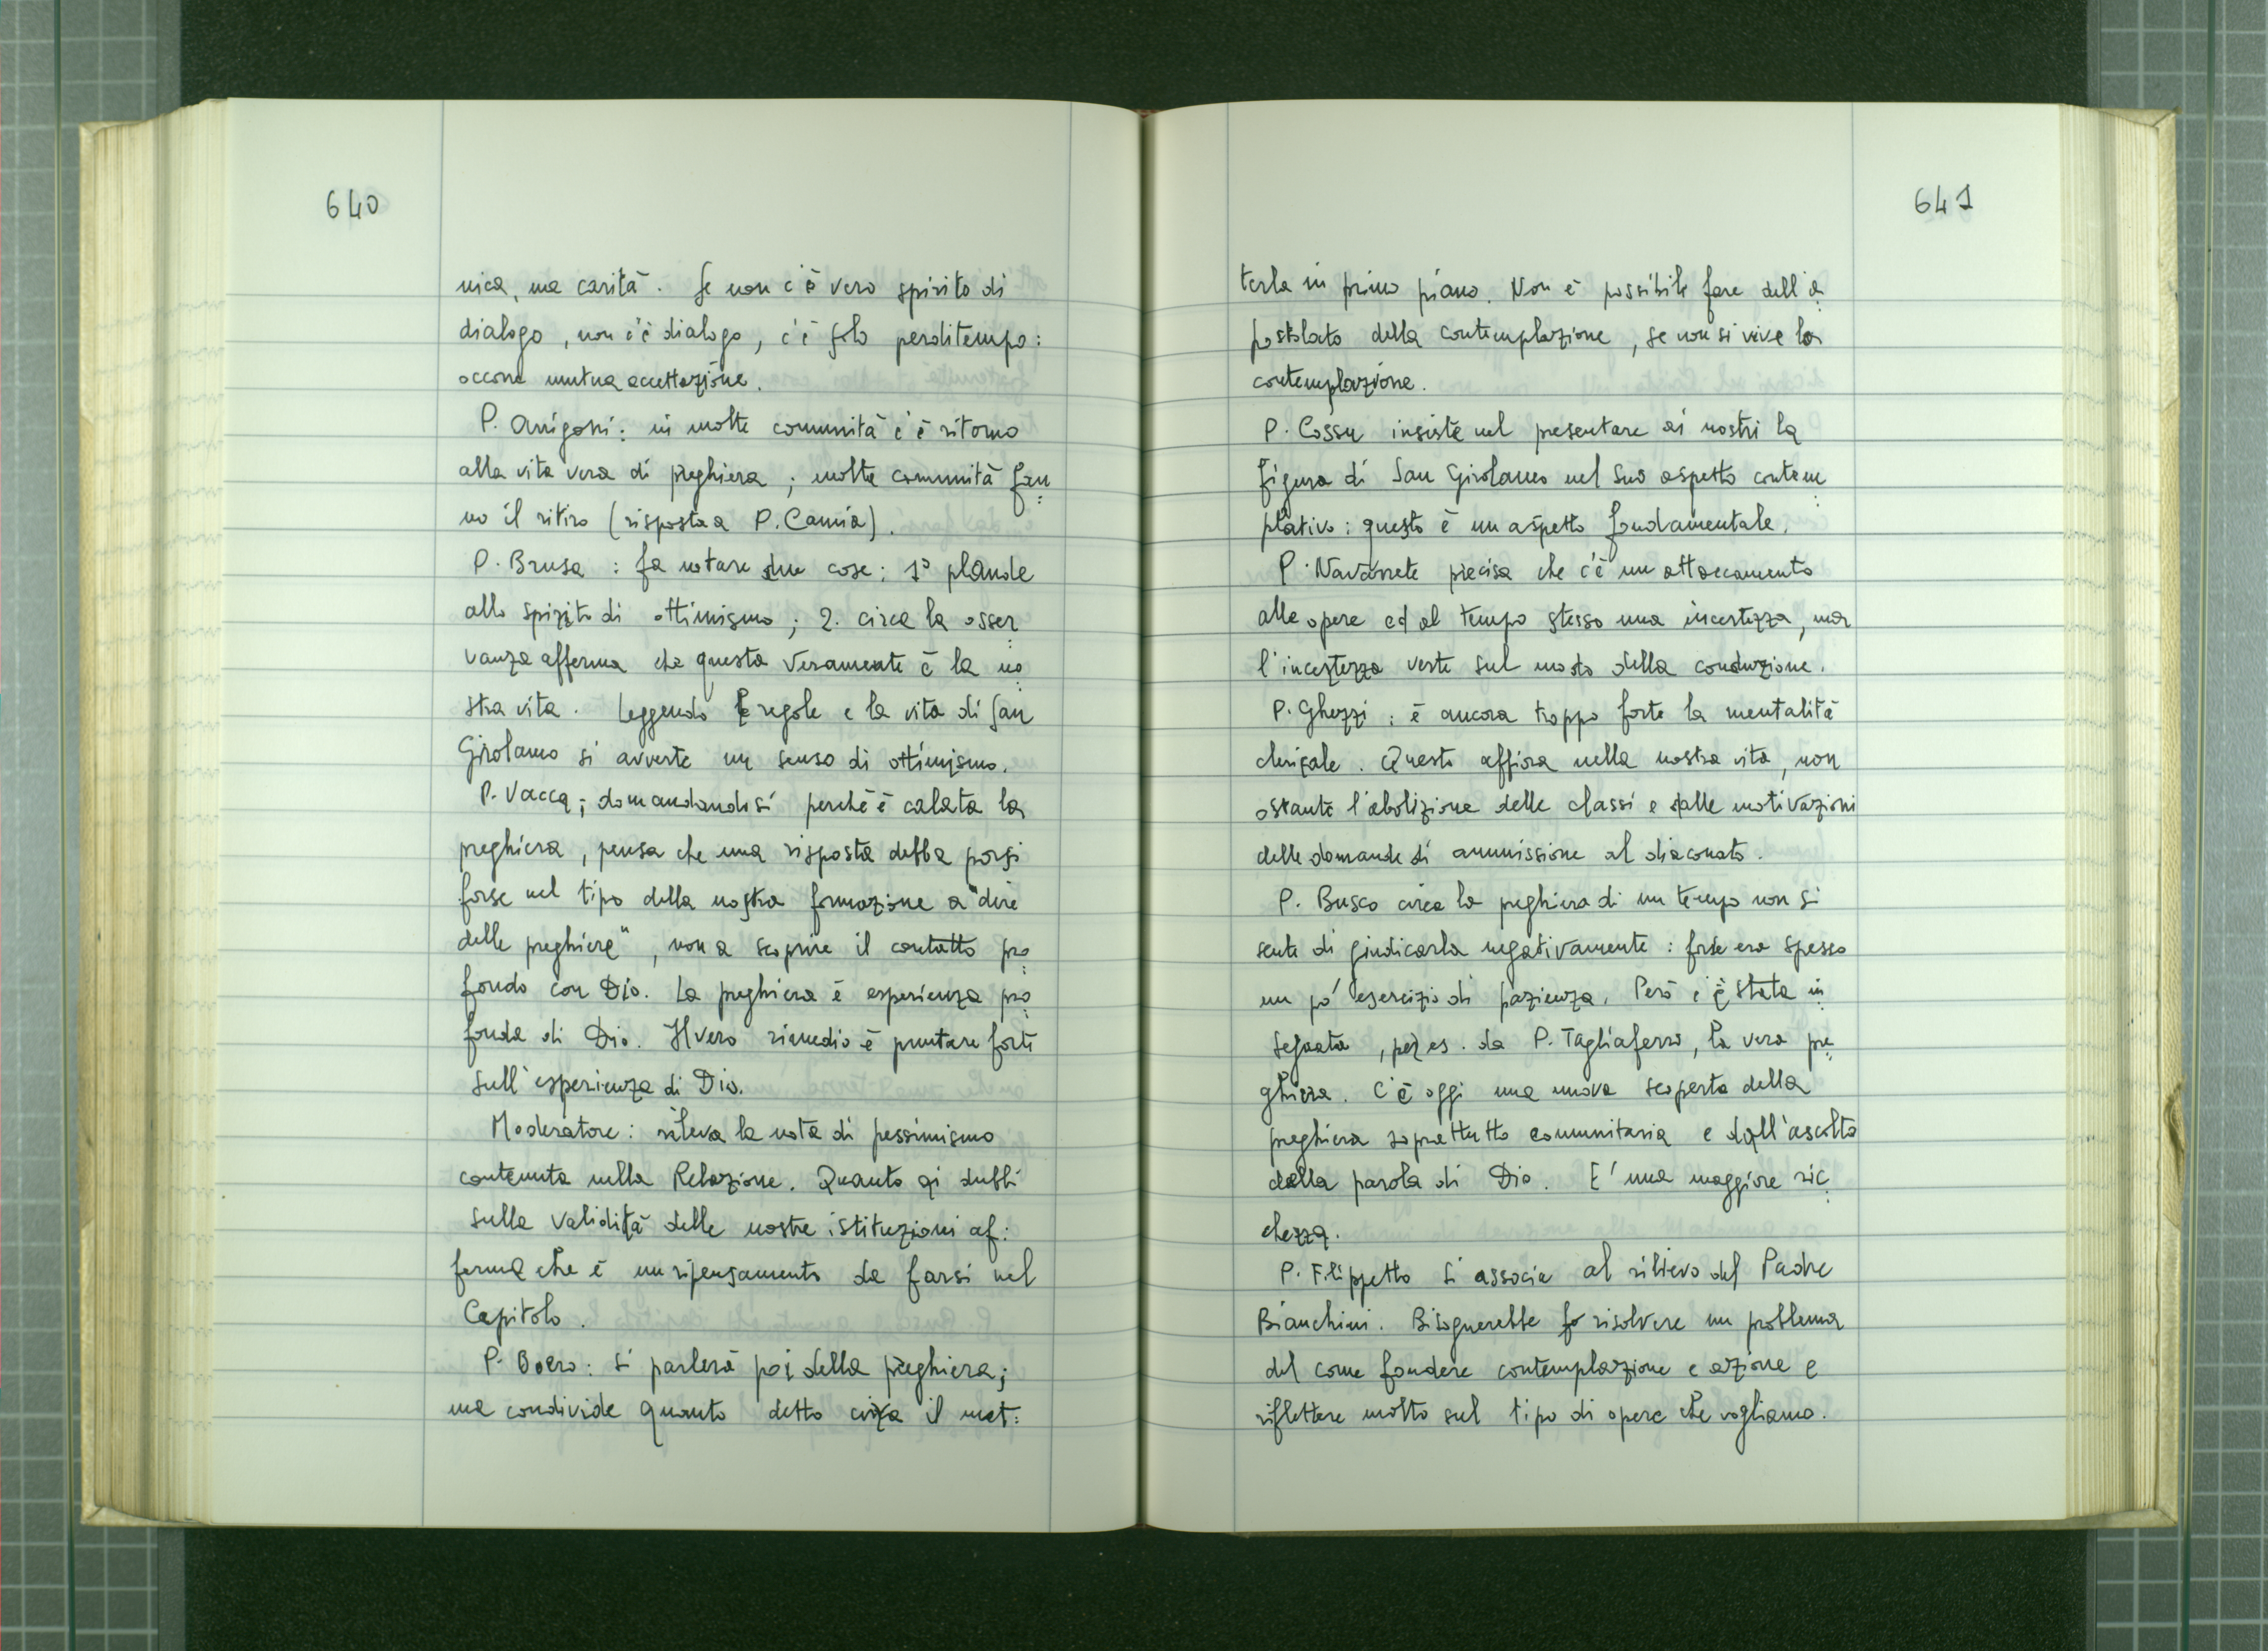 640
nica, ma carità. Se non c'è vero spirito di
dialogo, non c'è dialogo, c'è solo perditempo:
occorre mutua accettazione.
P. Arrigoni: in molte comunità c'è ritorno
alla vita vera di preghiera; molte comunità fan=
no il ritiro (risposta a P. Camia).
P. Brusa: fa notare due cose: 1° plaude
allo spirito di ottimismo; 2. circa la osser=
vanza afferma che questa veramente è la no=
stra vita. Leggendo le regole e la vita di San
Girolamo si avverte un senso di ottimismo.
P. Vacca; domandandosi perché è calata la
preghiera, pensa che una risposta debba porsi
forse nel tipo della nostra formazione a "dire
delle preghiere", non a scoprire il contatto pro=
fondo con Dio. La preghiera è esperienza pro=
fonda di Dio. Il vero rimedio è puntare forte
sull'esperienza di Dio.
Moderatore: rileva la nota di pessimismo
contenuta nella Relazione. Quanto ai dubbi
sulla validità delle nostre istituzioni af=
ferma che è un ripensamento da farsi nel
Capitolo.
P. Boero: si parlerà poi della preghiera;
ma condivide quanto detto circa il met=
641
terla in primo piano. Non è possibile fare dell'a=
postolato della contemplazione, se non si vive la
contemplazione.
P. Cossu insiste nel presentare ai nostri la
figura di San Girolamo nel suo aspetto contem=
plativo: questo è un aspetto fondamentale.
P. Navarrete precisa che c'è un attaccamento
alle opere ed al tempo stesso una incertezza, ma
l'incertezza verte sul modo della conduzione.
P. Ghezzi: è ancora troppo forte la mentalità
clericale. Questo affiora nella nostra vita, non
ostante l'abolizione delle classi e dalle motivazioni
delle domande di ammissione al diaconato.
P. Busco circa la preghiera di un tempo non si
sente di giudicarla negativamente: forse era spesso
un po' esercizio di pazienza. Però ci è stata in=
segnata, per es. da P. Tagliaferro, la vera pre=
ghiera. C'è oggi una nuova scoperta della
preghiera soprattutto comunitaria e dall'ascolto
della parola di Dio. E' una maggiore ric=
chezza.
P. Filippetto si associa al rilievo del Padre
Bianchini. Bisognerebbe risolvere un problema
del come fondere contemplazione e azione e
riflettere molto sul tipo di opere che vogliamo.